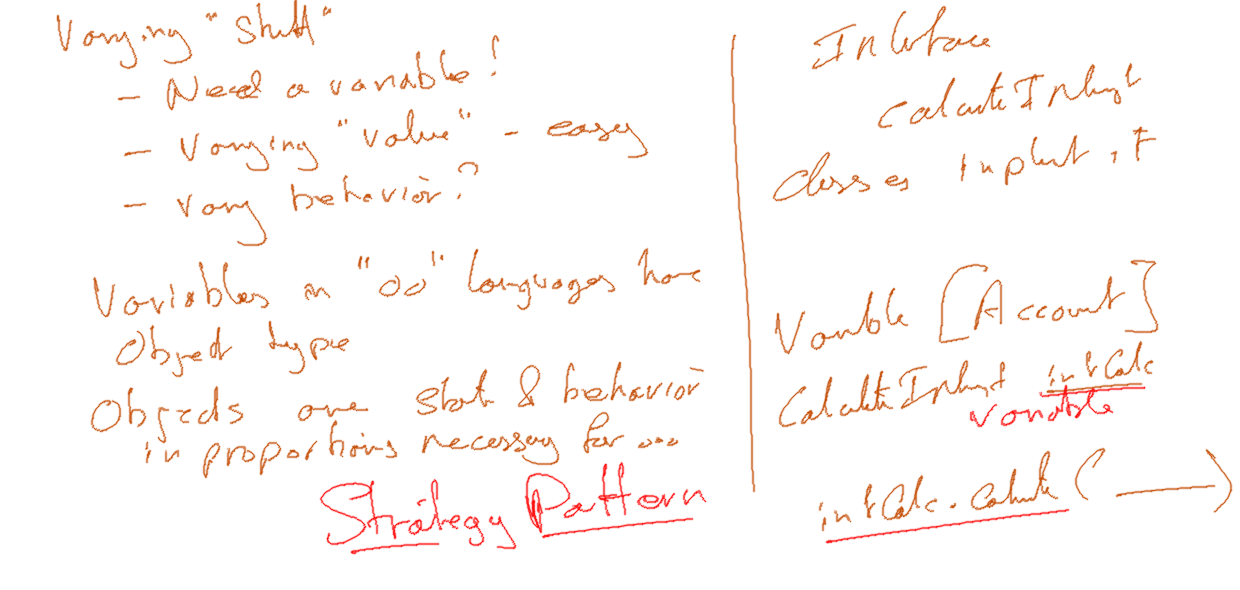 Varying "Stuff"
- Need a variable!
- Varying "value" - easy
- Vary behavior?
Variables in "OO" languages have
Object type
Objects are state & behavior
in proportions necessary for ...
Strategy Pattern
Interface
Calculate Interest
Classes implement it
Variable [Account]
Calculate Interest intCalc
variable
intCalc.Calculate (______)